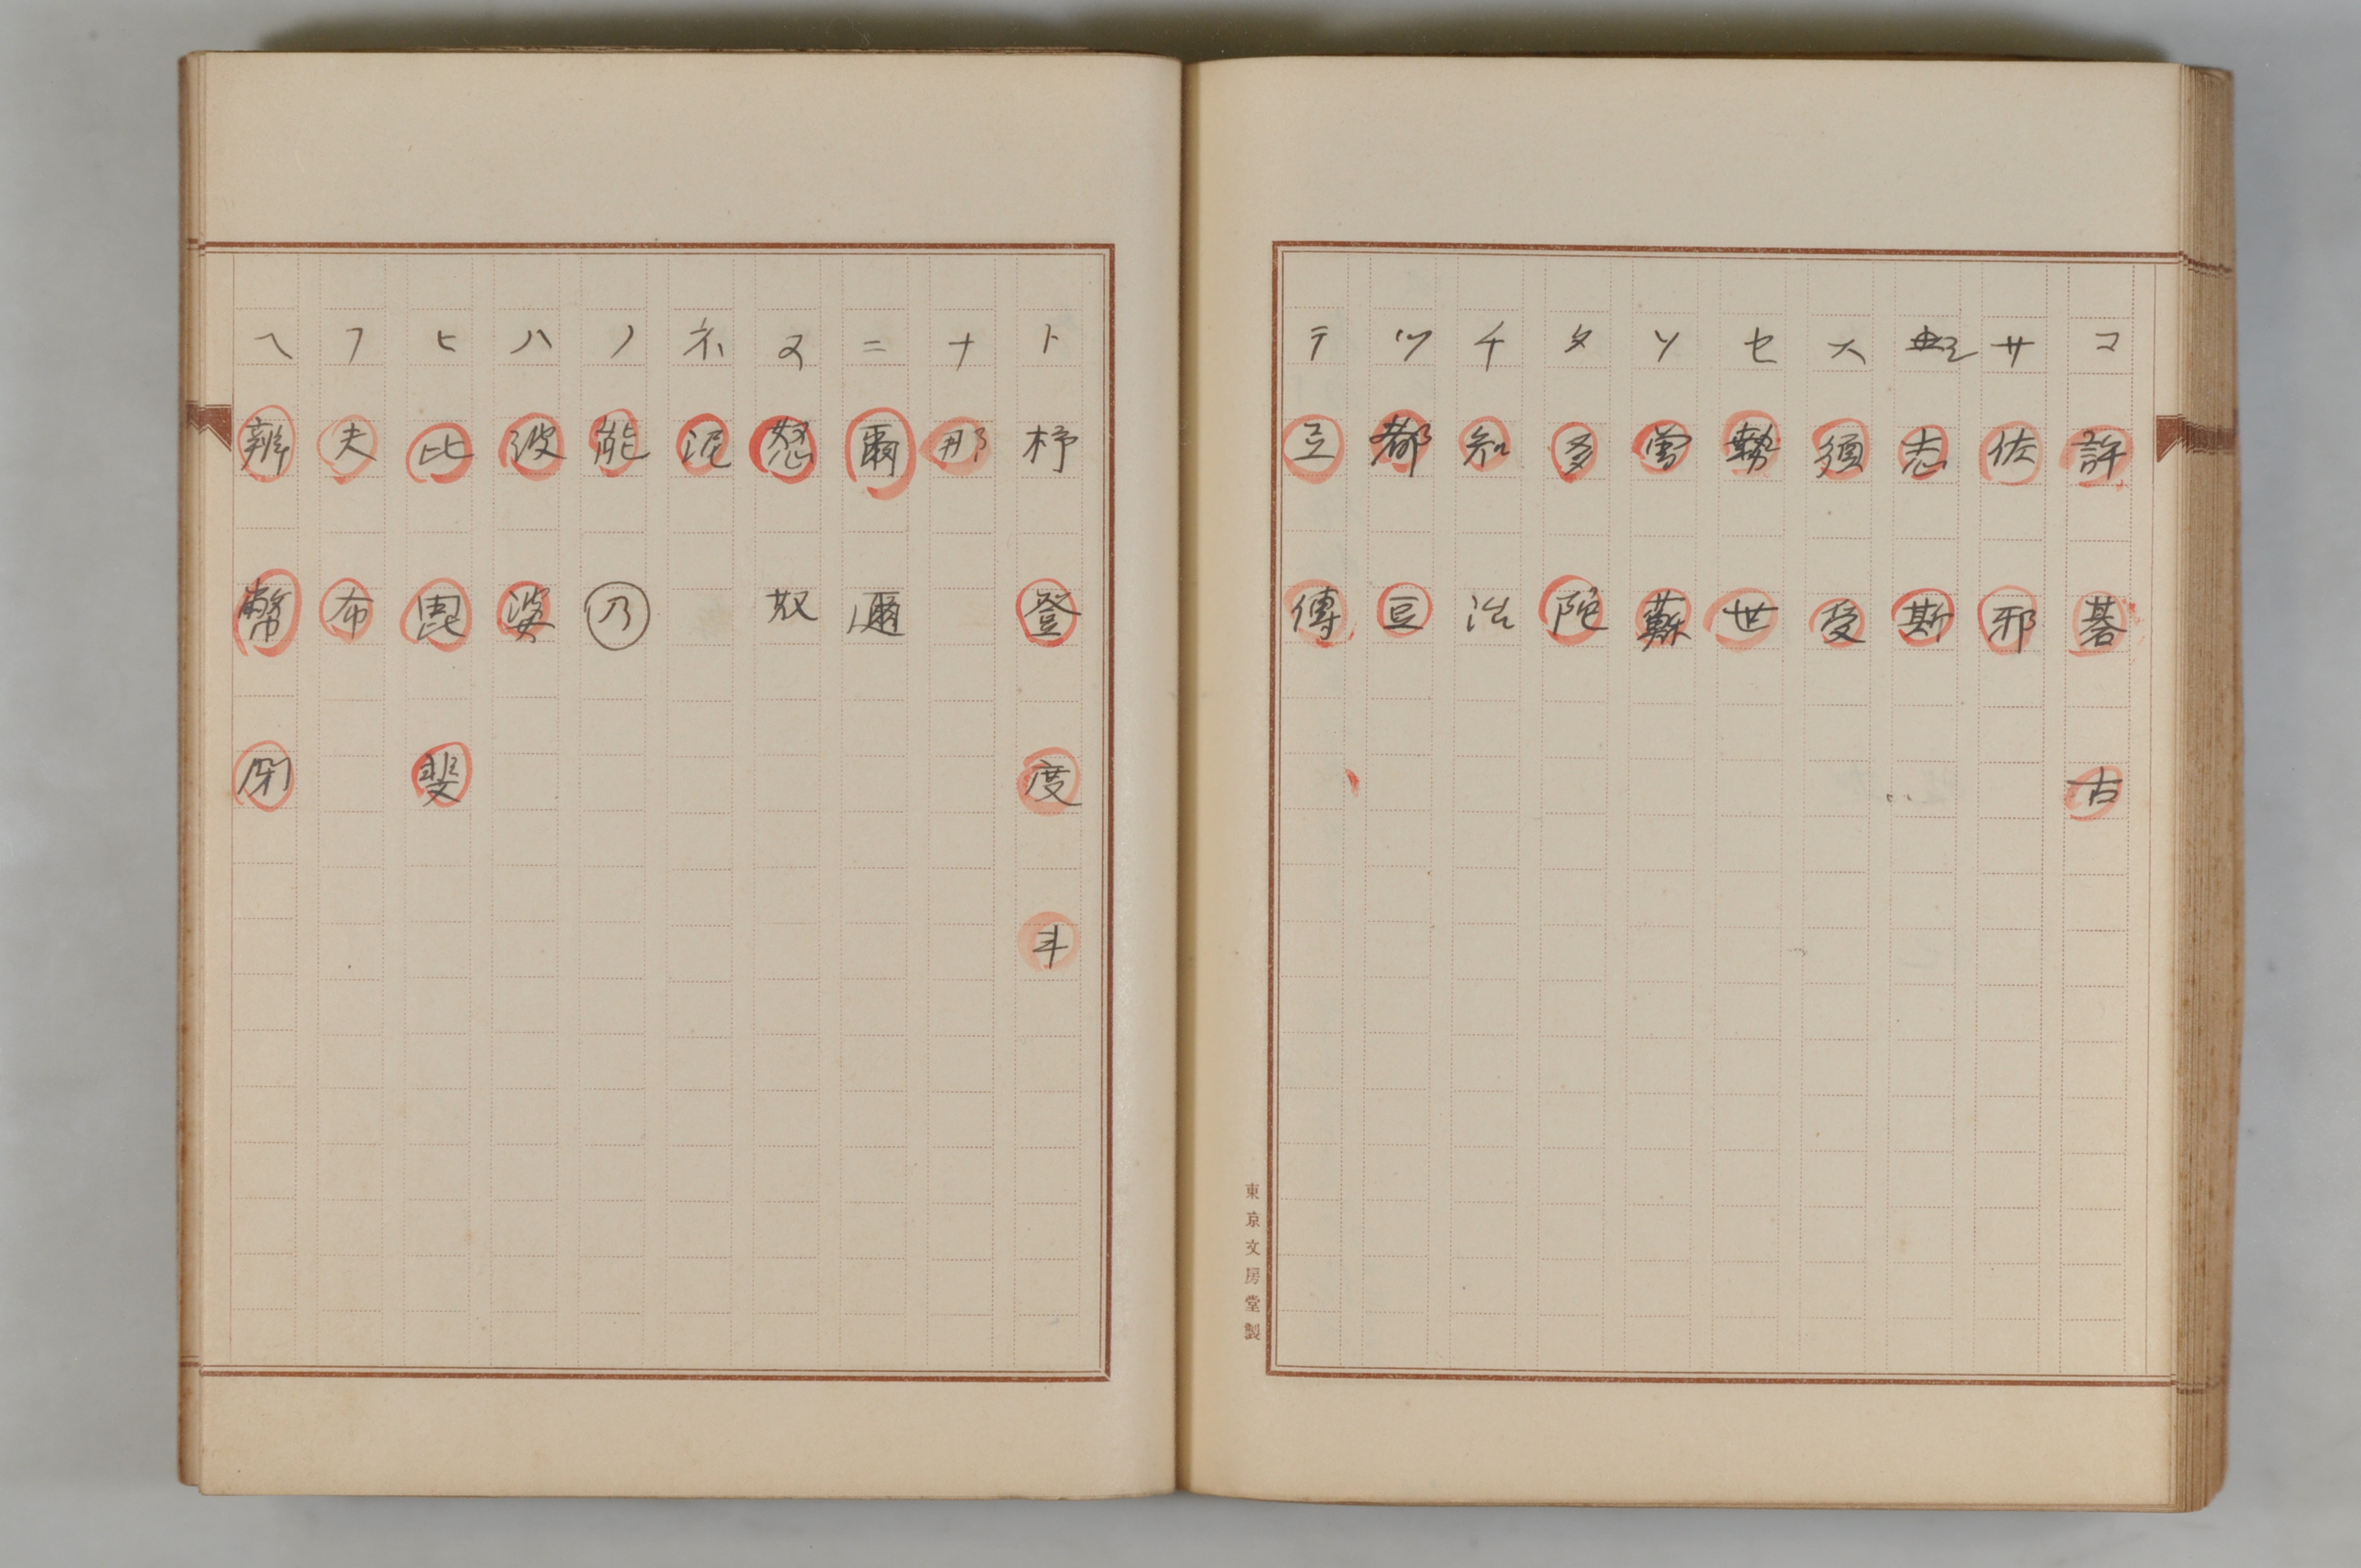 コ 許 碁 古
サ 佐 邪
志 斯
ス 須 受
セ 勢 世
ソ 曽 蘇
タ 多 陀
チ 知 治
ツ 都 豆
テ 弖 傳
東京文房堂製
ト 杼 登 度 斗
ナ 那
ニ 爾 邇
ヌ 怒 奴
ネ 泥
ノ 能 乃
ハ 波 婆
ヒ 比 毘 斐
フ 夫 布
ヘ 弊 閇